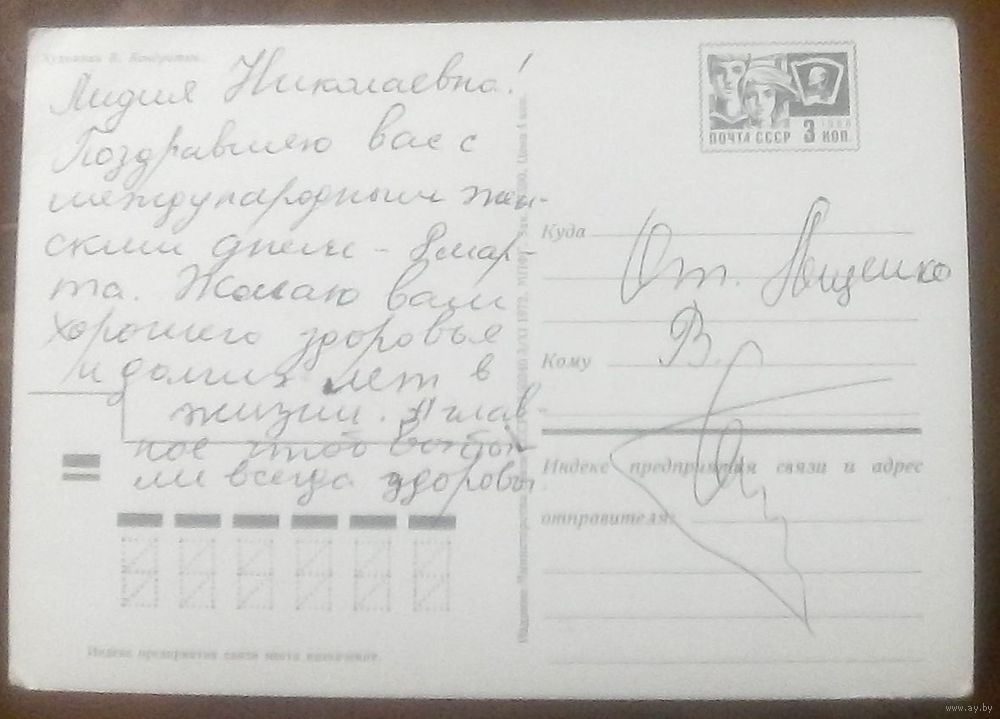 Художник В. Кондратюк.
Лидия Николаевна!
Поздравляю вас с
международным жен-
ским днем - 8 мар-
та. Желаю вам
хорошего здоровья
и долгих лет в
жизни. И глав-
ное чтоб вы бы-
ли всегда здоровы
Индекс предприятия связи места назначения.
ПОЧТА СССР 3 КОП
1966
Куда
От. Лященко
В.
Кому
Индекс предприятия связи и адрес
отправителя:
Издание Министерства связи СССР
1973. МПФГ. Зак. Цена 4 коп.
www.ay.by